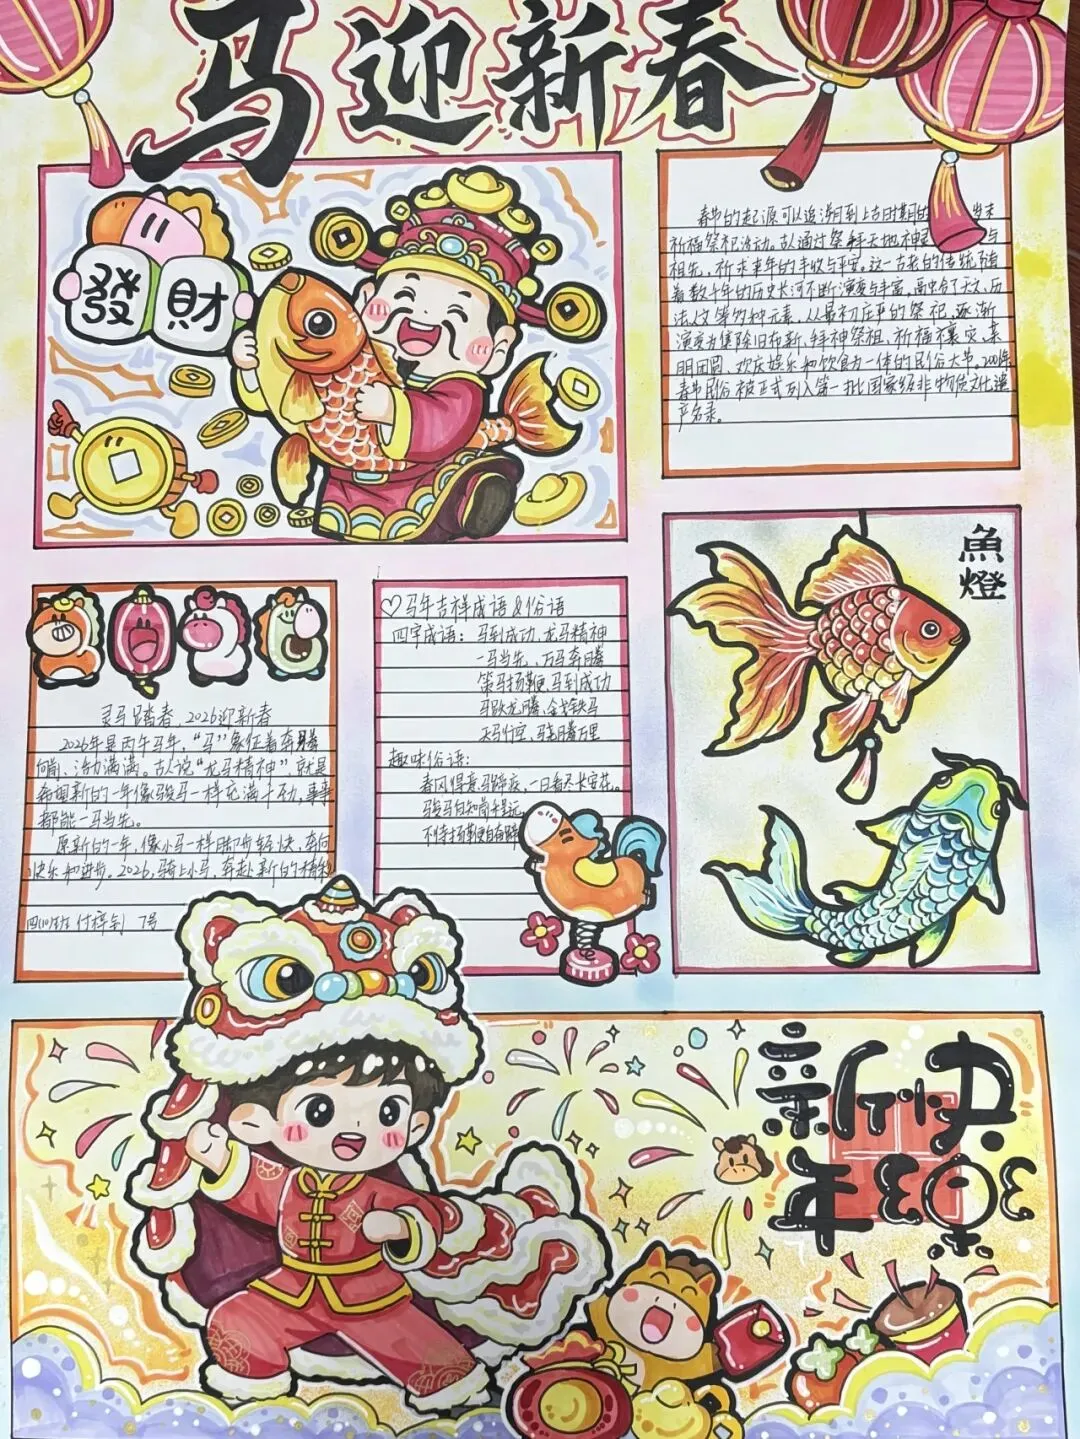 马迎新春
發財
春节的起源可以追溯到上古时期的岁末
祈福祭祀活动。古人通过祭拜天地神灵与
祖先,祈求来年的丰收与平安。这一古老的传统,随着
着数千年的历史长河不断演变与丰富,融合了天文、历
法、人文等多种元素,从最初庄严的祭祀,逐渐
演变为集除旧布新、拜神祭祖、祈福禳灾、亲
朋团圆、欢庆娱乐和饮食为一体的民俗大节。2006年
春节民俗被正式列入第一批国家级非物质文化遗
产名录。
魚燈
灵马踏春,2026迎新春
2026年是丙午马年,“马”象征着奔腾
向前、活力满满。古人说“龙马精神”,就是
希望新的一年像骏马一样充满干劲,事事
都能一马当先。
愿新的一年,像小马一样脚步轻快,奔向
快乐和进步。2026,骑上小马,奔赴新的精彩
四(10)班 付梓钊 7号
♡马年吉祥成语&俗语
四字成语:马到成功、龙马精神
一马当先、万马奔腾
策马扬鞭、马到成功
马跃龙腾、金戈铁马
天马行空、骁腾万里
趣味俗语:
春风得意马蹄疾,一日看尽长安花。
骏马自知前程远,
不待扬鞭自奋蹄
新年快樂